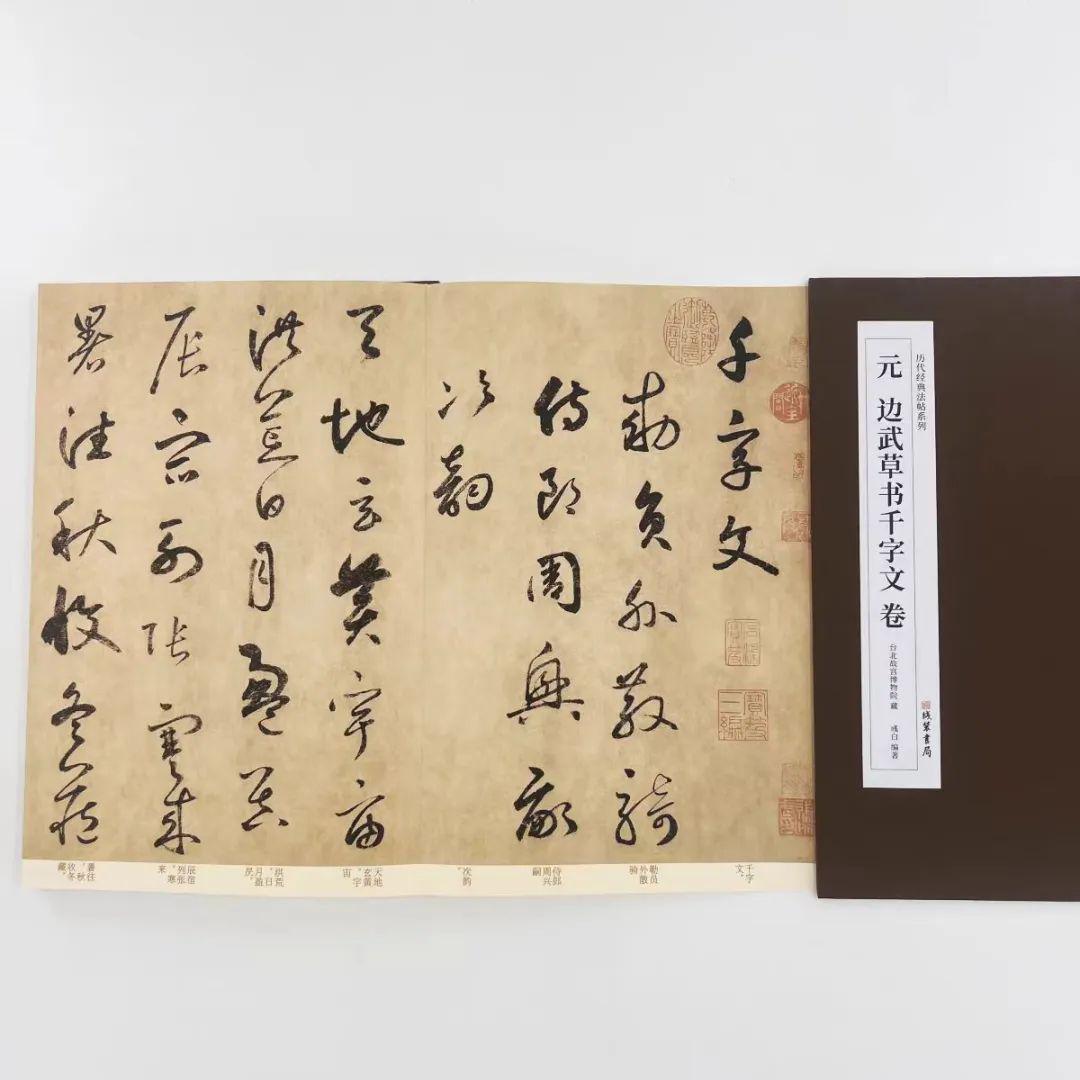 历代经典法帖系列
元 边武草书千字文 卷
台北故宫博物院 藏
编著
线装书局
千字文
勅員外散騎
侍郎周興嗣
次韻
天地玄黄宇宙
洪荒日月盈昃
辰宿列張寒来
暑往秋收冬藏
寶笈三編
千字文。
员外散
侍郎周兴嗣
次韵。
天地玄黄,宇宙
洪荒。日月盈昃,
辰宿列张。寒来
暑往,秋收冬藏。